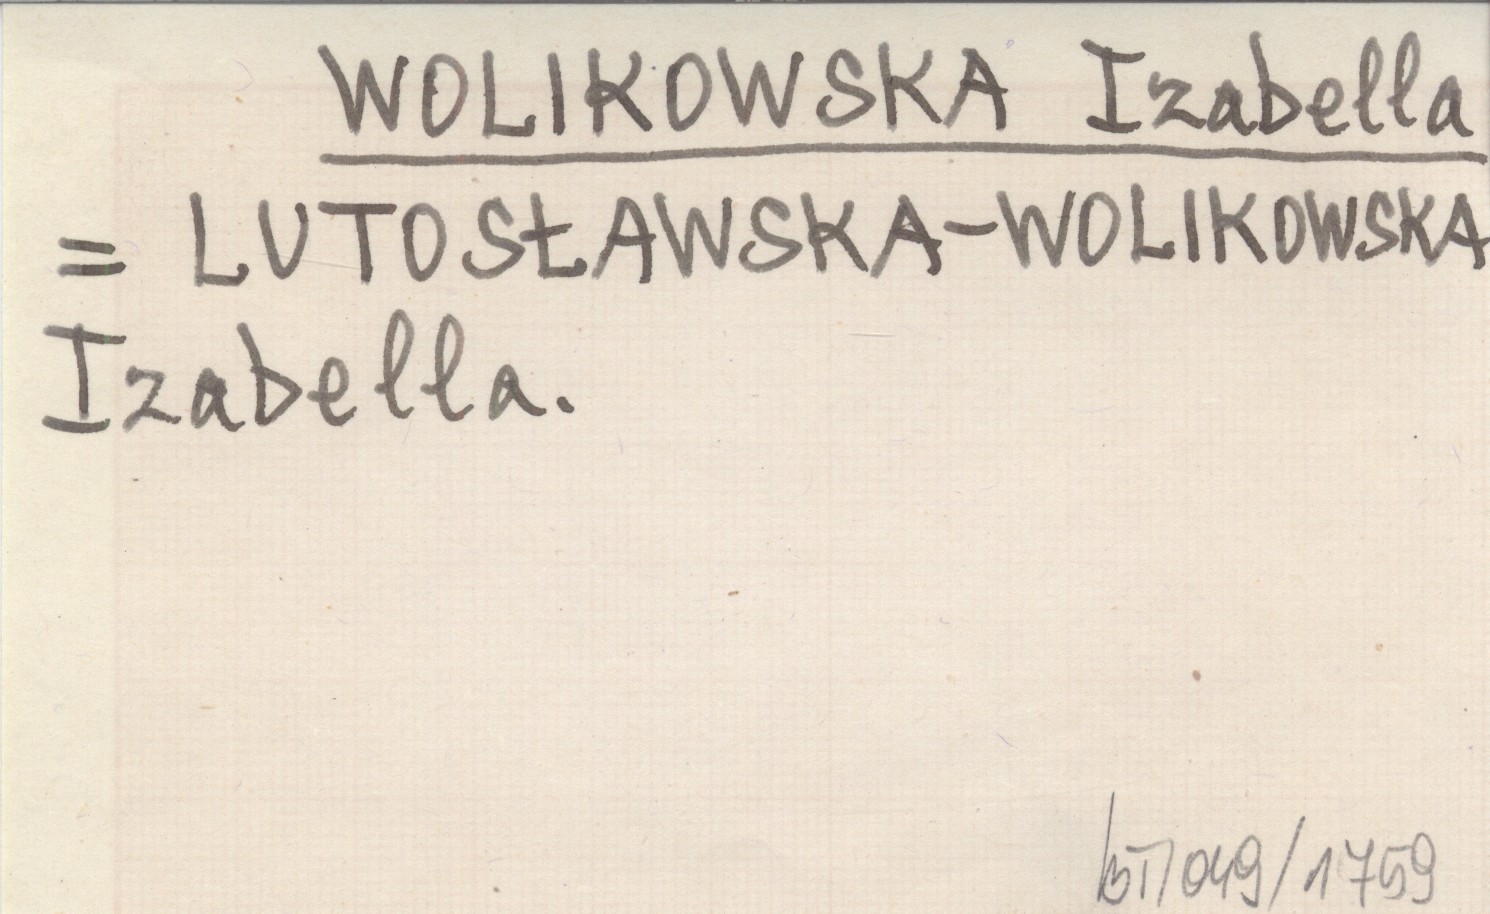 WOLIKOWSKA Izabella
= LUTOSŁAWSKA-WOLIKOWSKA
Izabella.
049/1759